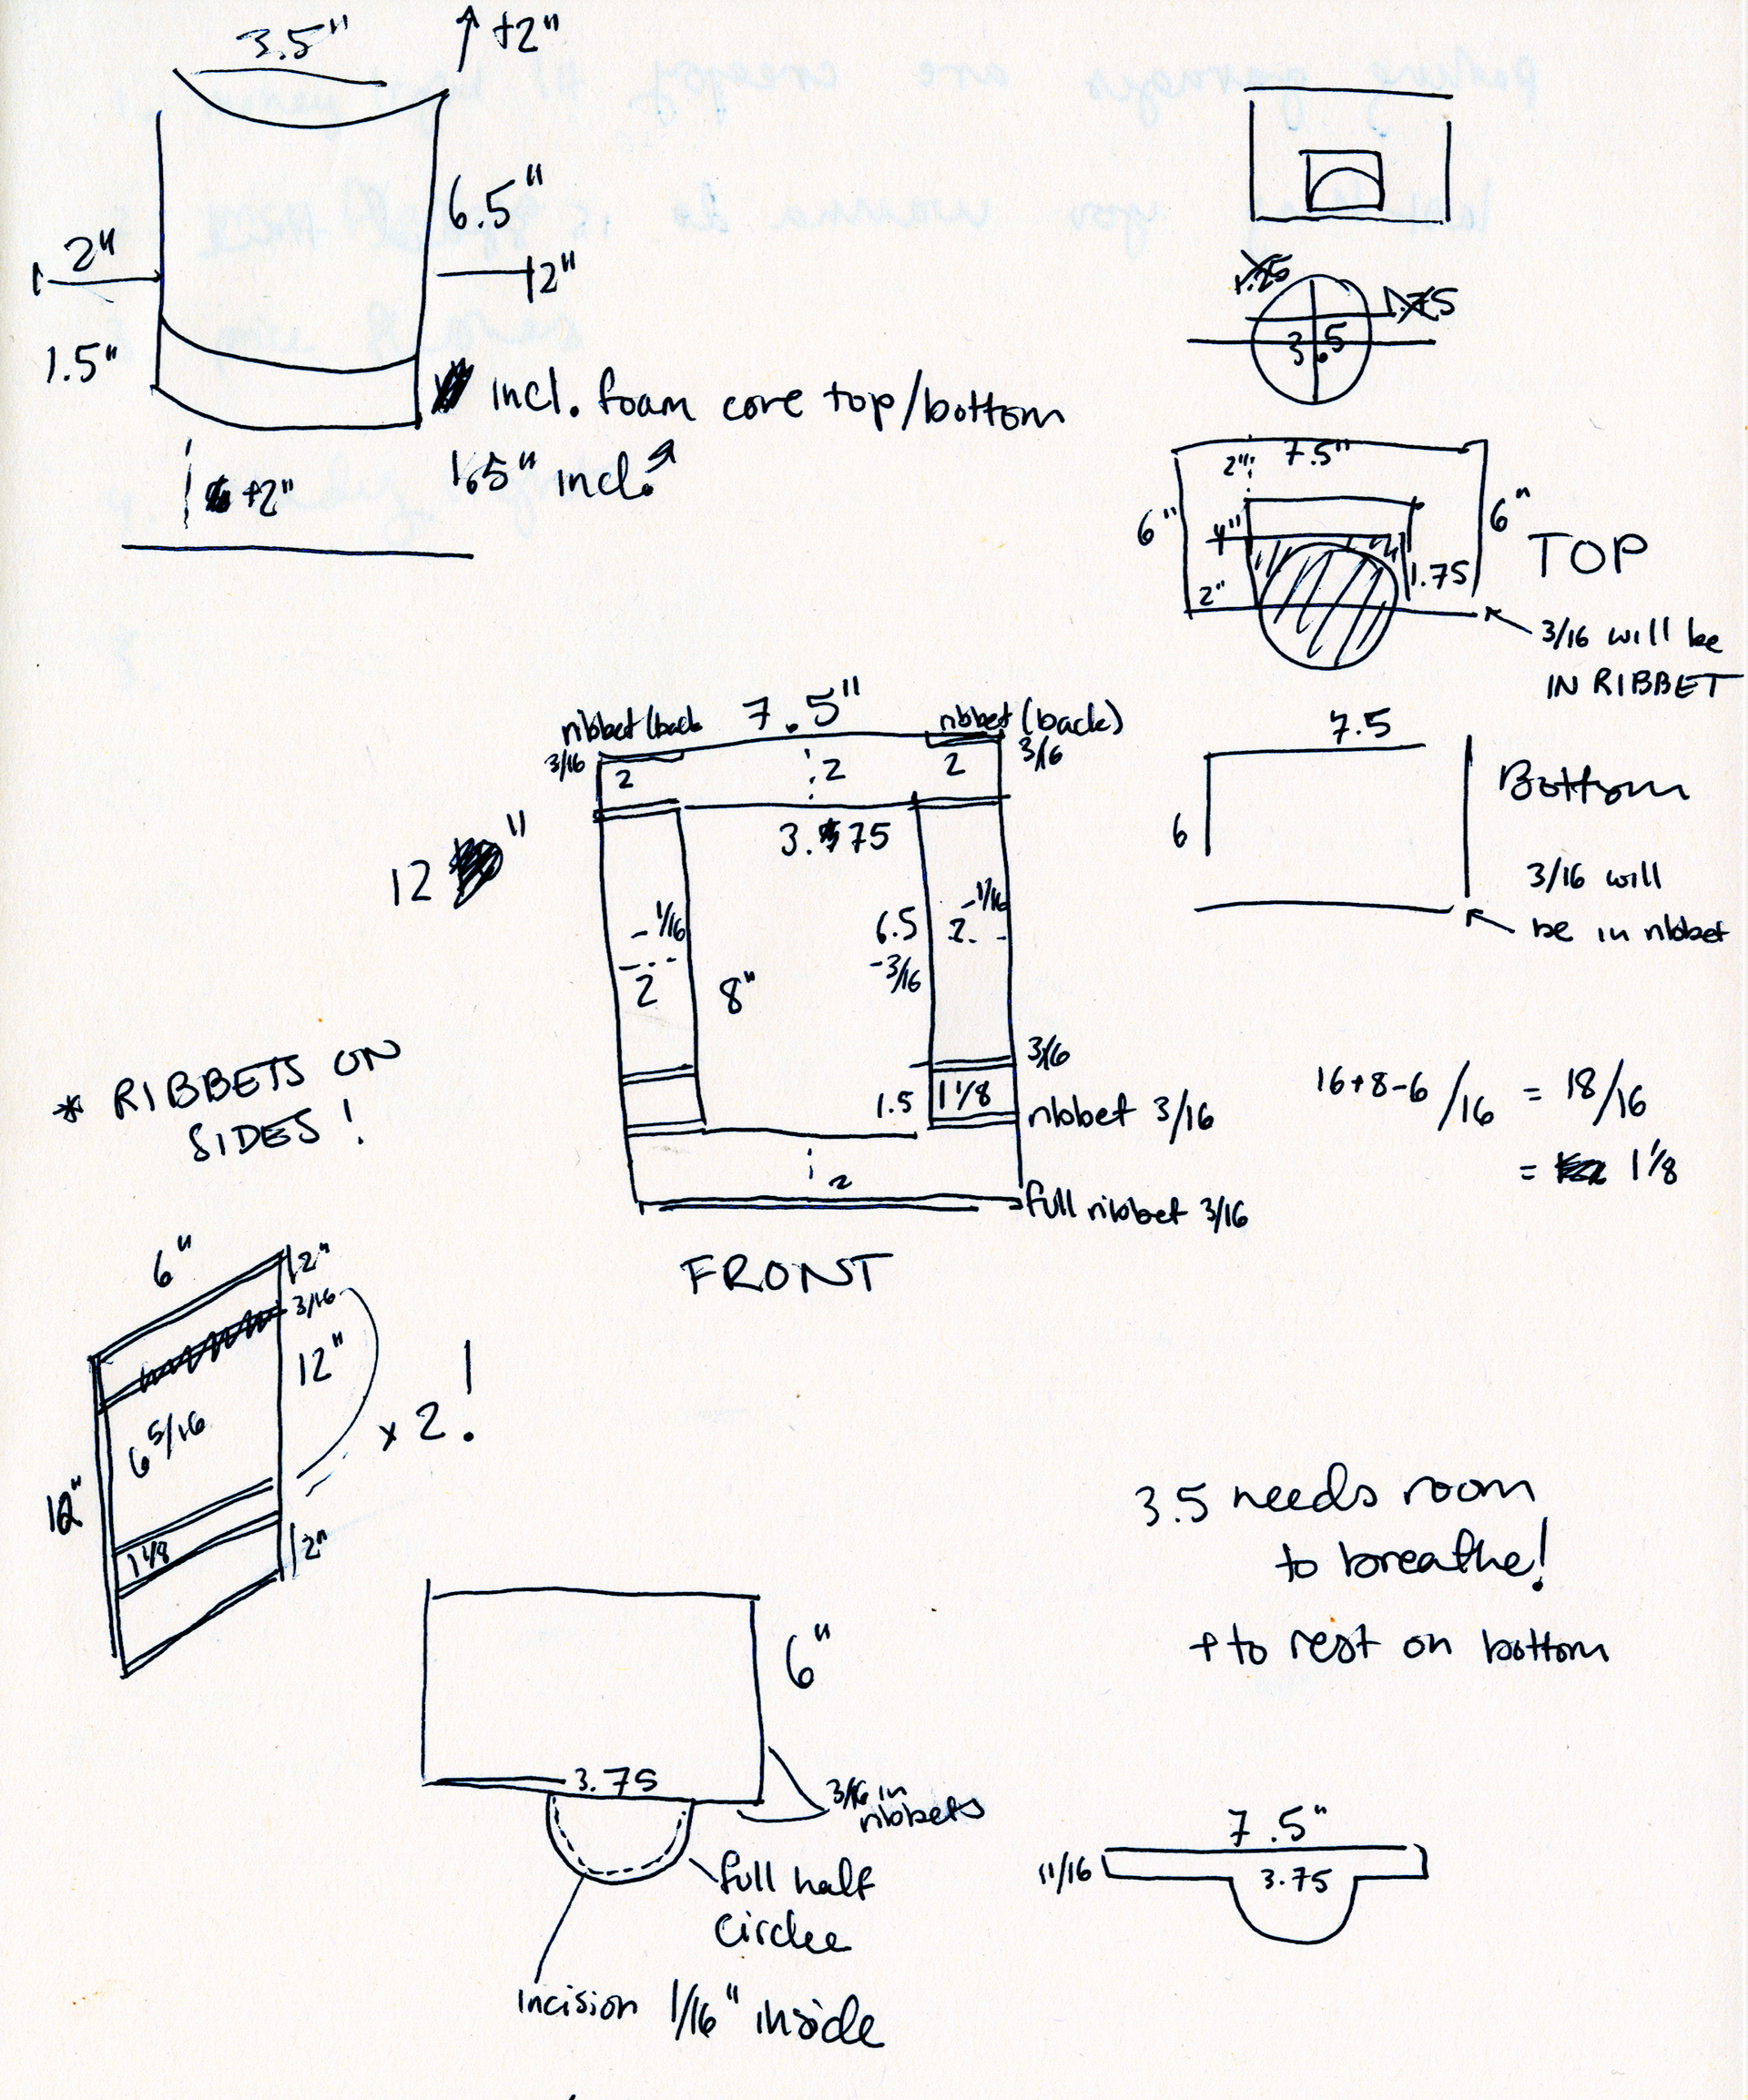 3.5"
↑ +2"
6.5"
2"
2"
1.5"
incl. foam core top/bottom
1.5" incl.
+2"
3.5
2" 7.5"
6"
6"
4"
TOP
1.75
2"
3/16 will be
IN RIBBET
7.5
Bottom
6
3/16 will
be in ribbet
ribbet (back
7.5"
ribbet (back)
3/16
2
2
2
3/16
12 "
3.75
-1/16
2
8"
6.5
-3/16
-1/16
2
3/16
1.5
1 1/8
ribbet 3/16
2
full ribbet 3/16
FRONT
16+8-6/16 = 18/16
= 1 1/8
* RIBBETS ON
SIDES!
6"
2"
3/16
12"
6 5/16
x 2!
12"
1 1/8
2"
3.5 needs room
to breathe!
+ to rest on bottom
6"
3.75
3/16 in
ribbets
full half
circlee
incision 1/16" inside
7.5"
11/16
3.75